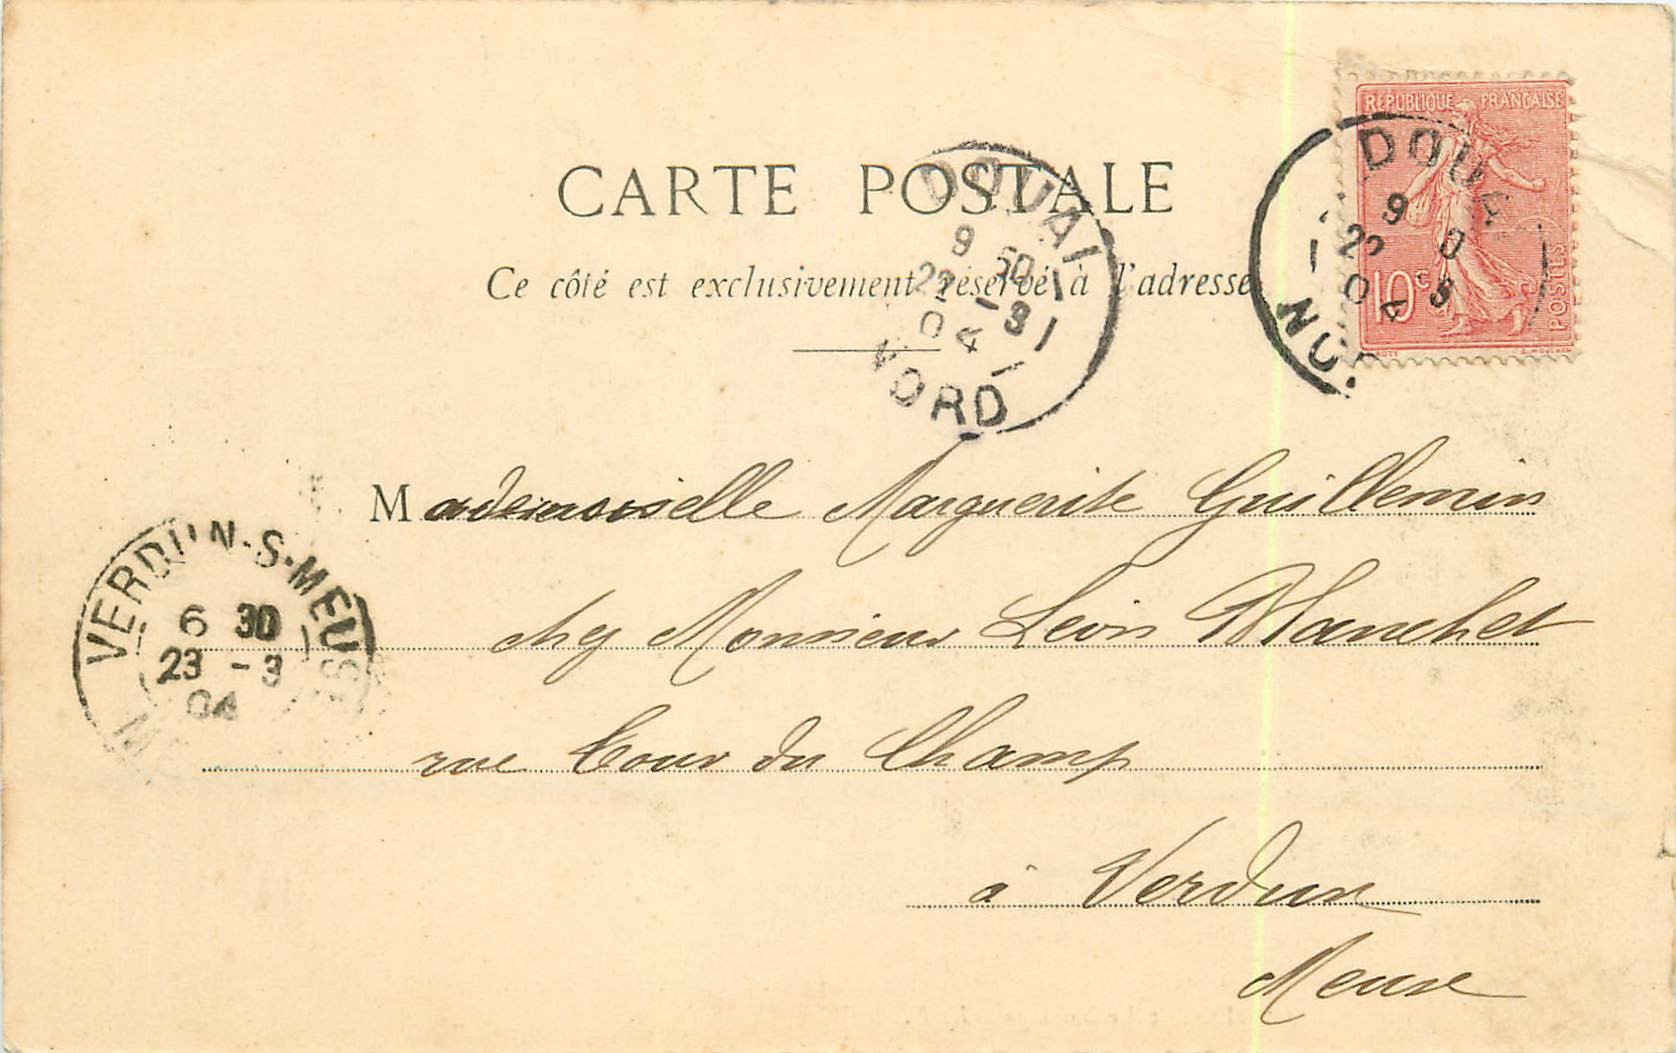 RÉPUBLIQUE FRANÇAISE
10c POSTES
DOUAI
9
22 3
04
NORD
CARTE POSTALE
DOUAI
9 50
22 -3
04
NORD
Ce côté est exclusivement réservé à l'adresse
Mademoiselle Marguerite Guillemin
chez Monsieur Léon Planchet
rue Cour du Champ
à Verdun
Meuse
VERDUN-S-MEUSE
6 30
23 -3
04